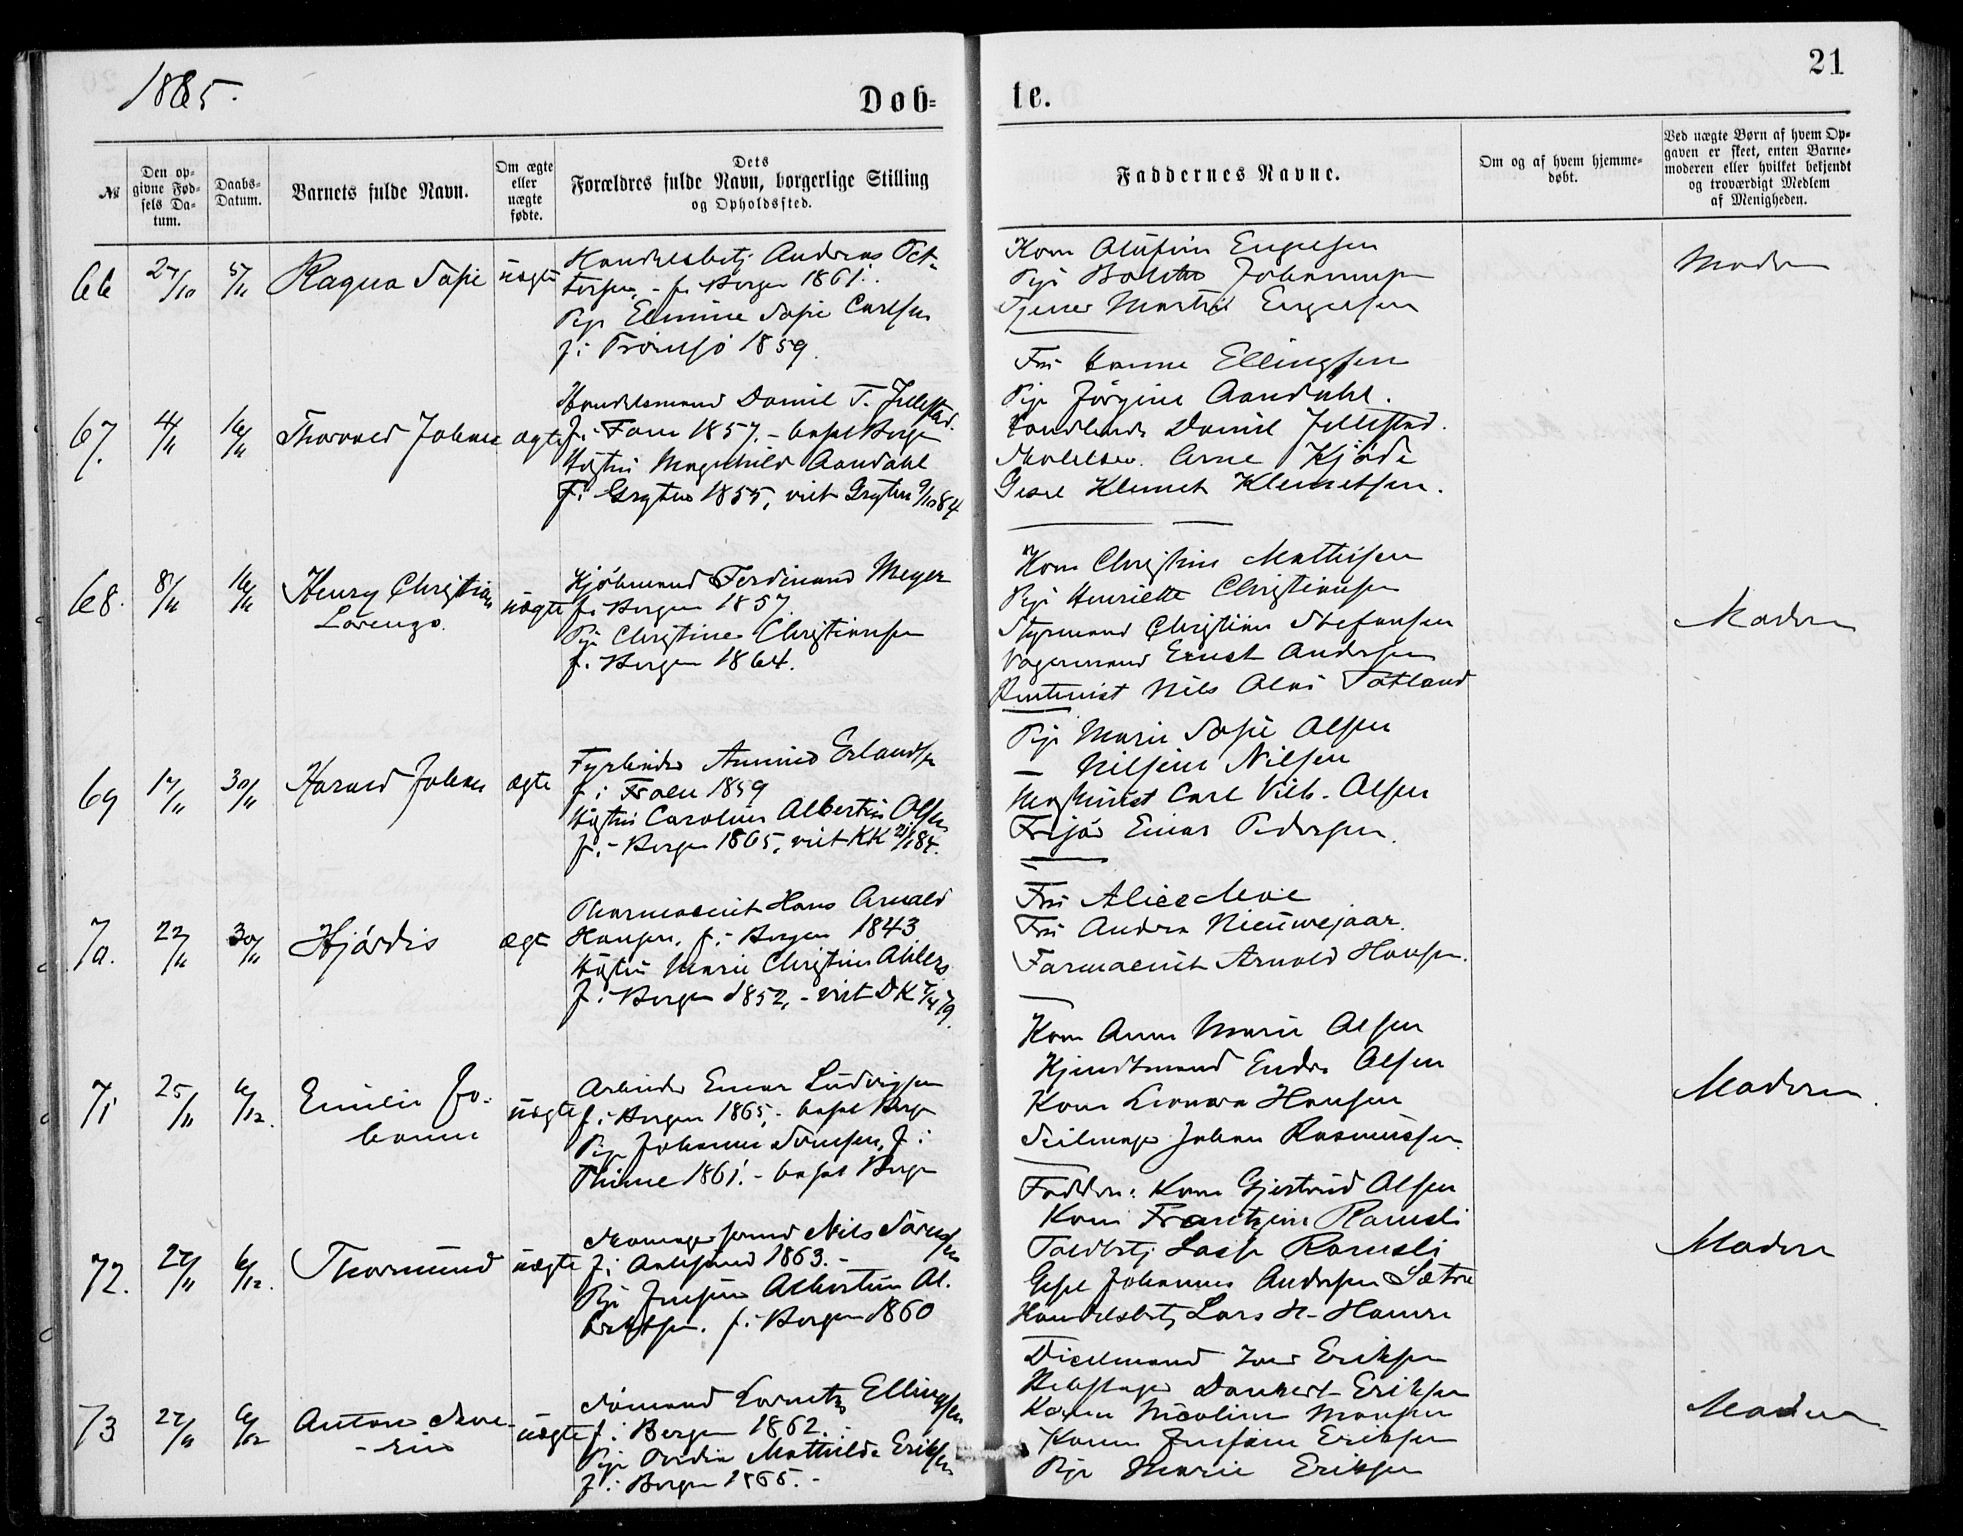 1885.
Døb=
te.
21
№
Den op-
givne Fød-
sels Da-
tum.
Daabs-
Datum.
Barnets fulde Navn.
Om ægte
eller
uægte
fødte.
Dets
Forældres fulde Navn, borgerlige Stilling
og Opholdssted.
Faddernes Navne.
Om og af hvem hjemme-
døbt.
Ved uægte Børn af hvem Op-
gaven er skeet, enten Barne-
moderen eller hvilket bekjendt
og troværdigt Medlem
af Menigheden.
66
5/11
Ragna Sofie
uægte
Handelsbetj. Andreas
f. i Bergen 1861.
Pige Elmine Sofie Carlsen
f. i Tromsø 1859.
Kone Olufine Engelsen
Pige Johannesen
Tjener Martin Engelsen
Moderen
67.
4/11
16/11
Thorvald Johan
ægte
Handelsmand Daniel T. Jellestad.
f. i Fane 1857. - bosat Bergen
Hustru Magnhild Aandahl
f. i Grytten 1855, viet Grytten 9/10 84
Fru Hanne Ellingsen
Pige Jørgine Aandahl.
Daniel Jellestad.
Arne Kjøde
Klemet Klemetsen.
68.
8/11
16/11
Henry Christian
Lorenzo.
uægte
Kjøbmand Ferdinand Meyer
f. i Bergen 1857.
Pige Christine Christiansen
f. i Bergen 1864.
Kone Christine Mathisen
Pige Henriette Christiansen
Styrmand Christian Stefansen
Vognmand Ernst Andersen
Nils Olai Totland
Moderen
69
17/11
30/11
Harald Johan
ægte
Fyrbøder Amund Erlandsen
f. i 1859
Hustru Caroline Albertine Olsen
f. i Bergen 1865, viet KK 84.
Pige Marie Sofie Olsen
— Nilsine Nilsen
Maskinist Carl Vilh. Olsen
Einar Pedersen.
70.
22/11
30/11
Hjørdis
ægte
Pharmaceut Hans Arnold
Hansen, f. i Bergen 1843
Hustru Marie Christine Ahlers
f. i Bergen 1852, - viet DK 7/4 79.
Fru Alice Moe
Fru Andrea Nieuwejaar.
Farmaceut Arnold Hansen.
71
25/11
6/12.
Emilie Jo-
hanne
uægte
Arbeider Einar Ludvigsen
f. i Bergen 1865, bosat Bergen
Pige Johanne Sørensen, f. i
Thime 1861. - bosat Bergen
Kone Anna Marie Olsen
Kjendtmand Endre Olsen
Kone Leonora Hansen
Seilmager Johan Rasmussen
Moderen.
72.
27/11
6/12.
Thormund
uægte
Nils Sørensen
f. i Aalesund 1863. -
Pige Josefine Albertine Al-
brektsen. f. i Bergen 1860
Faddere: Kone Gjertrud Olsen
Kone Frantzine Ramsli
Toldbetj. Lasse Ramsli
Gesel Johannes Andersen Sætre
Handelsbetj. Lars H. Hamre
Moderen
73
27/11
6/12
Anton Seve-
-rin
uægte
Sømand Lorentz Ellingsen
f. i Bergen 1862. -
Pige Ovidia Mathilde Eriksen
f. i Bergen 1865. -
Iver Eriksen
Rebslager Dankert Eriksen
Konen Nicoline Monsen
Konen Josefine Eriksen
Pige Marie Eriksen
Moderen